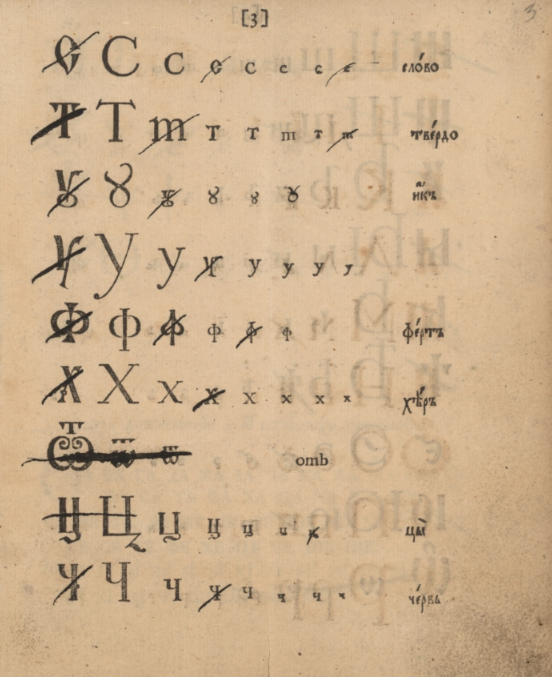 [3]
3
С С С С С С С С слóво
Т Т т Т Т т Т т твéрдо
Ꙋ Ꙋ Ꙋ Ꙋ Ꙋ Ꙋ и҆́къ
У У У У У У У У
Ф Ф Ф Ф Ф Ф фéртъ
Х Х Х Х Х Х Х Х хѣ́ръ
Ѿ Ѿ Ѿ отъ
Ц Ц Ц Ц Ц Ц Ц цы̀
Ч Ч Ч Ч Ч Ч Ч Ч чéрвь